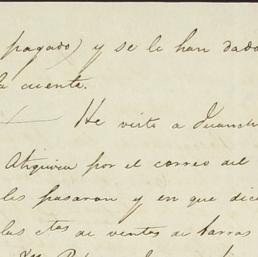 pagado) y se le han dado
la cuenta.
He visto a Juanch
por el correo del
les pasaron y en que dice
las ctas de ventas de barras